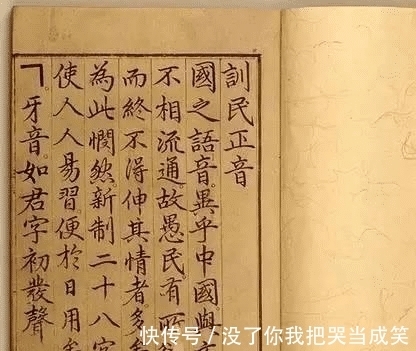 訓民正音
國之語音異乎中國與
不相流通故愚民有所
而終不得伸其情者多矣
為此憫然新制二十八字
使人人易習便於日用矣
ㄱ牙音如君字初發聲
快传号/没了你我把哭当成笑